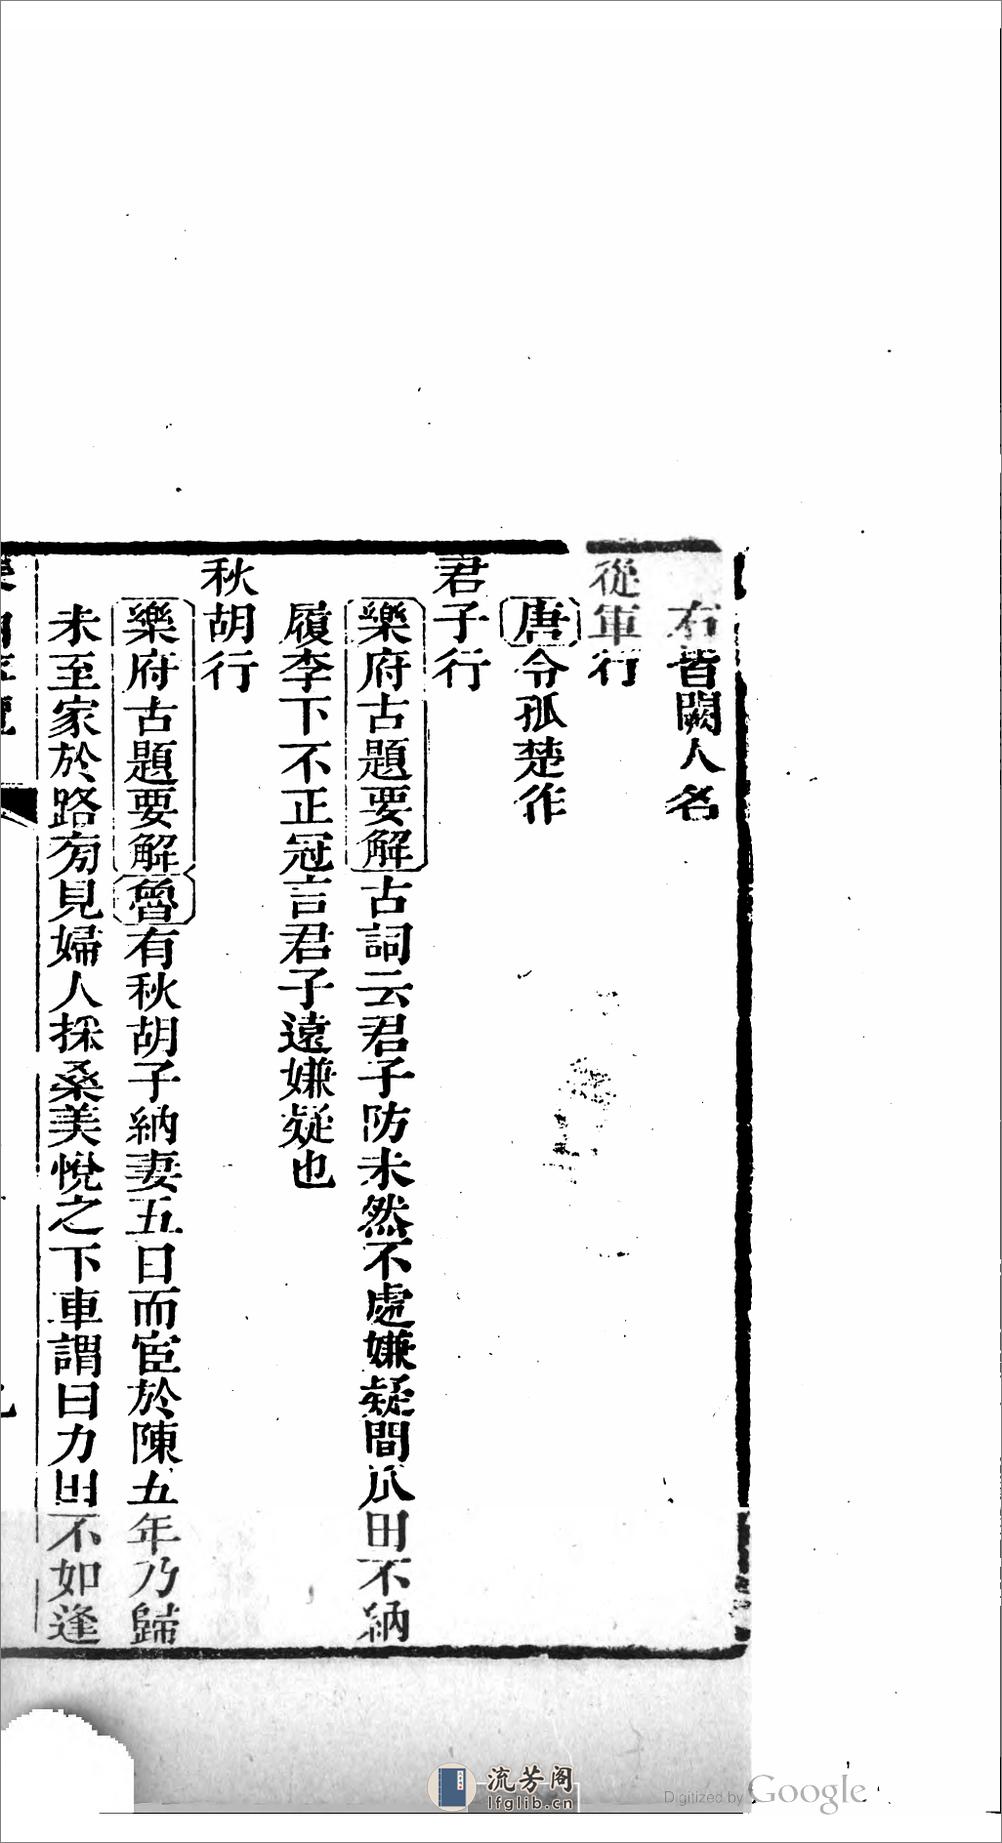 右皆闕人名
從軍行
唐令孤楚作
君子行
樂府古題要解古詞云君子防未然不處嫌疑間瓜田不納
履李下不正冠言君子遠嫌疑也
秋胡行
樂府古題要解魯有秋胡子納妻五日而宦於陳五年乃歸
未至家於路旁見婦人採桑美悅之下車謂曰力田不如逢
流芳阁
lfglib.cn
Digitized by Google